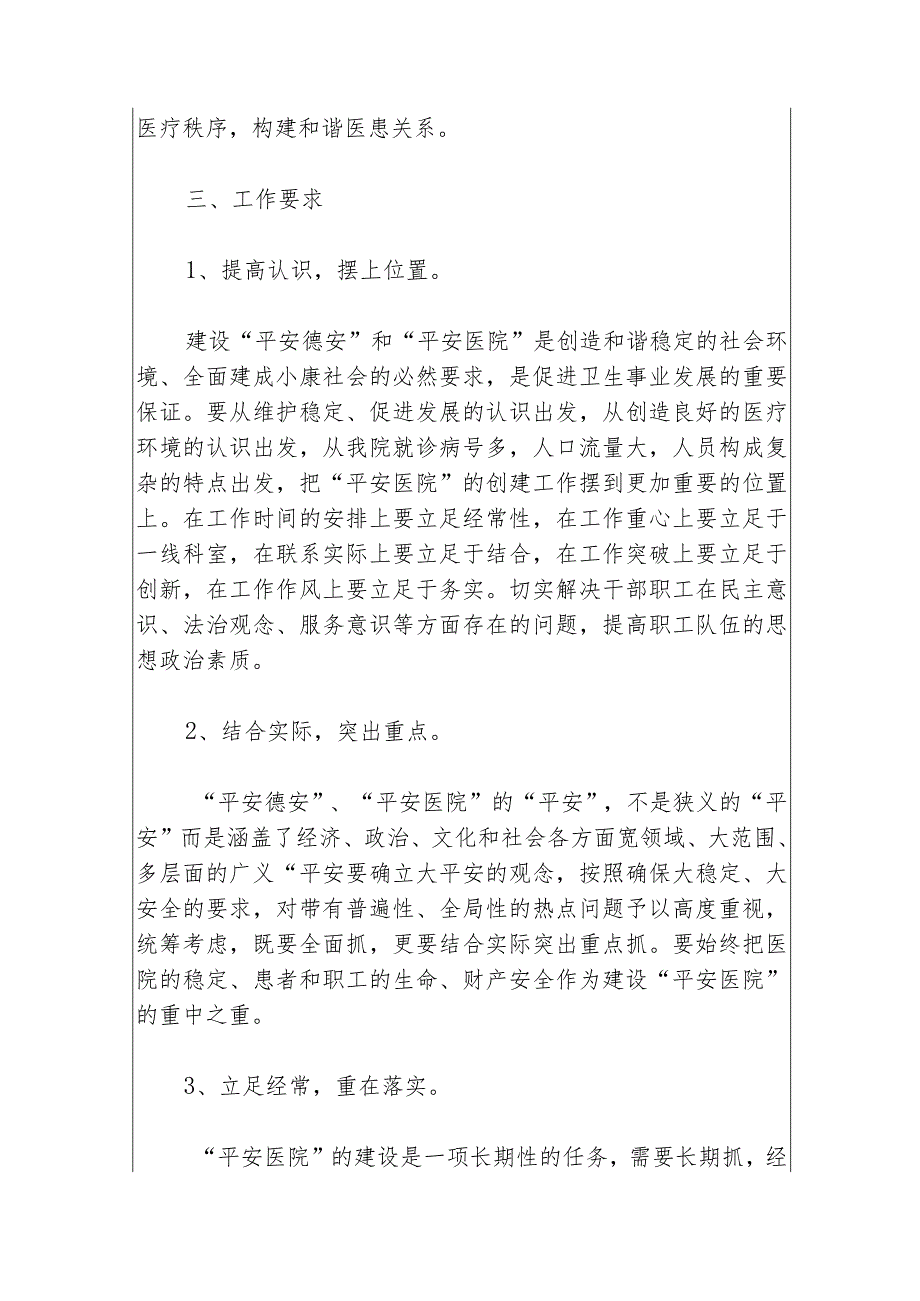 医疗秩序，构建和谐医患关系。
三、工作要求
1、提高认识，摆上位置。
建设“平安德安”和“平安医院”是创造和谐稳定的社会环
境、全面建成小康社会的必然要求，是促进卫生事业发展的重要
保证。要从维护稳定、促进发展的认识出发，从创造良好的医疗
环境的认识出发，从我院就诊病号多，人口流量大，人员构成复
杂的特点出发，把“平安医院”的创建工作摆到更加重要的位置
上。在工作时间的安排上要立足经常性，在工作重心上要立足于
一线科室，在联系实际上要立足于结合，在工作突破上要立足于
创新，在工作作风上要立足于务实。切实解决干部职工在民主意
识、法治观念、服务意识等方面存在的问题，提高职工队伍的思
想政治素质。
2、结合实际，突出重点。
“平安德安”、“平安医院”的“平安”，不是狭义的“平
安”而是涵盖了经济、政治、文化和社会各方面宽领域、大范围、
多层面的广义“平安要确立大平安的观念，按照确保大稳定、大
安全的要求，对带有普遍性、全局性的热点问题予以高度重视，
统筹考虑，既要全面抓，更要结合实际突出重点抓。要始终把医
院的稳定、患者和职工的生命、财产安全作为建设“平安医院”
的重中之重。
3、立足经常，重在落实。
“平安医院”的建设是一项长期性的任务，需要长期抓，经